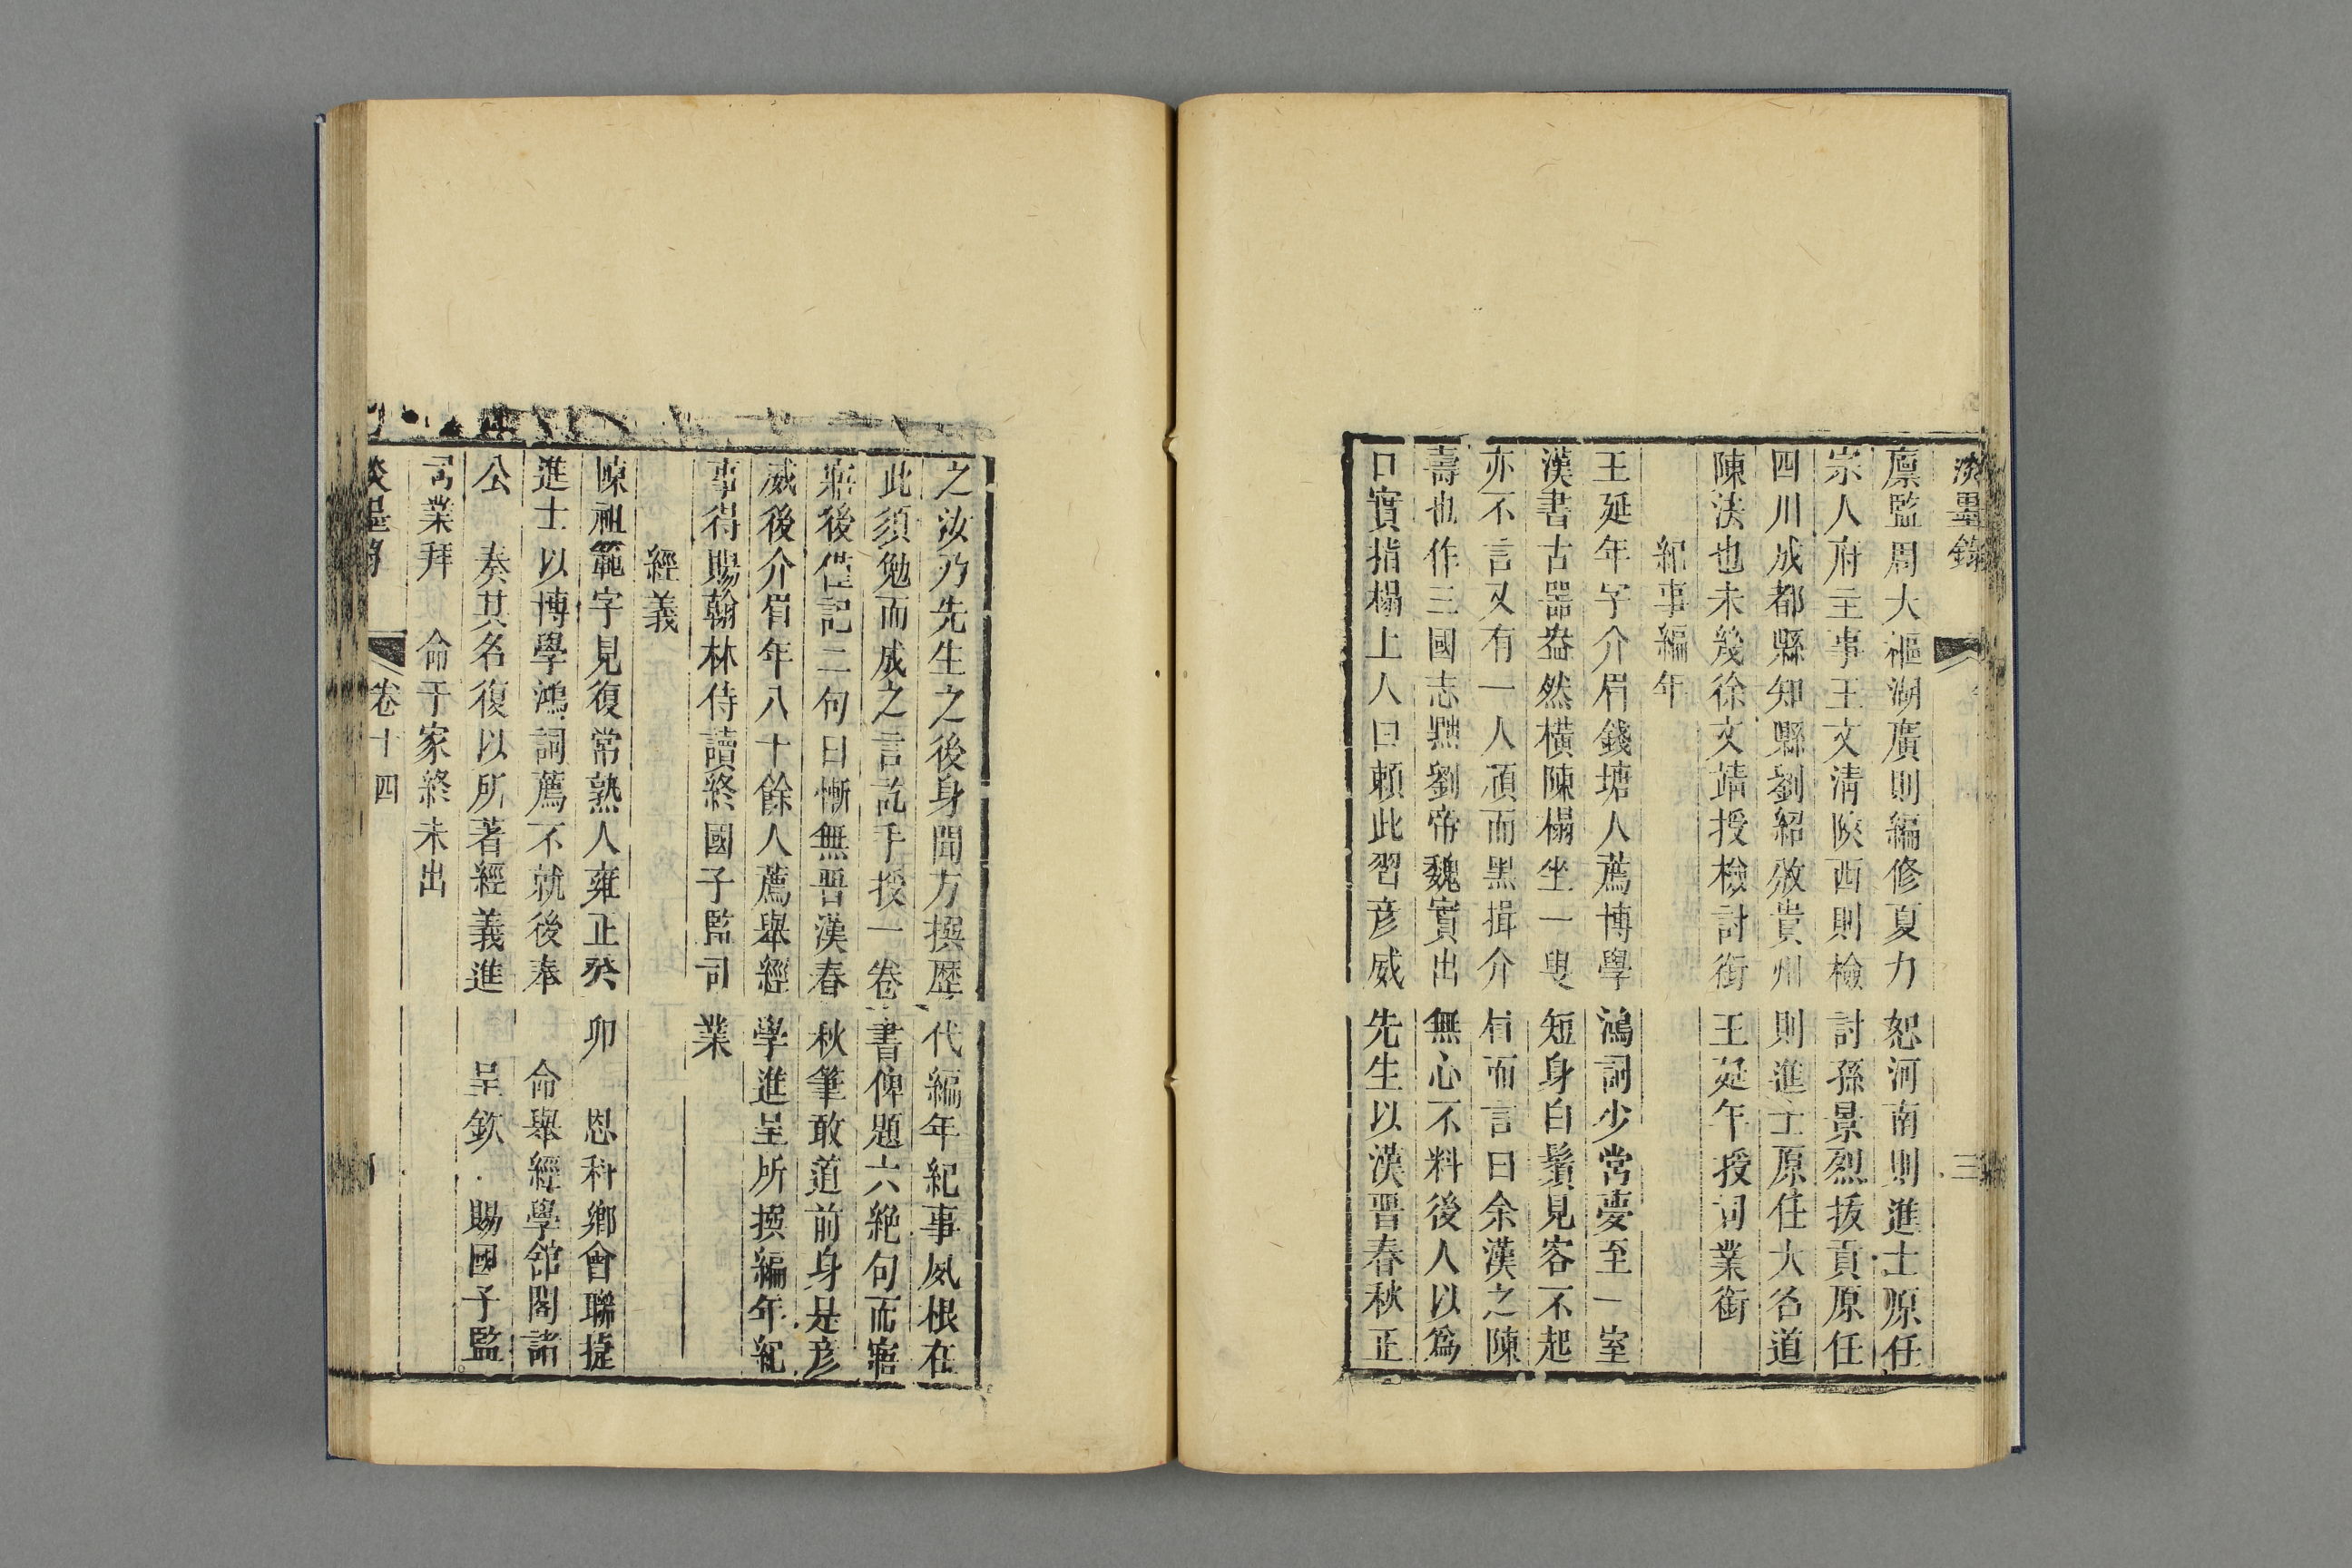 淡墨錄
三
廪監周大樞湖廣則編修夏力恕河南則進士原任
宗人府主事王文淸陝西則檢討孫景烈拔貢原任
四川成都縣知縣劉紹攽貴州則進士原任大名道
陳法也未幾徐文靖授檢討銜王延年授司業銜
紀事編年
王延年字介眉錢塘人薦博學鴻詞少常夢至一室
漢書古器盎然橫陳榻坐一叟短身白鬚見客不起
亦不言又有一人頎而黑揖介眉而言曰余漢之陳
壽也作三國志黜劉帝魏實出無心不料後人以爲
口實指榻上人曰賴此習彥威先生以漢晋春秋正
之汝乃先生之後身聞方撰歷代編年紀事夙根在
此須勉而成之言訖手授一卷書俾題六絶句而寤
寤後僅記二句曰慚無晋漢春秋筆敢道前身是彥
威後介眉年八十餘人薦舉經學進呈所撰編年紀
事得賜翰林侍讀終國子監司業
經義
陳祖範字見復常熟人雍正癸卯 恩科鄉會聯捷
進士以博學鴻詞薦不就後奉 命舉經學舘閣諸
公 奏其名復以所著經義進 呈欽賜國子監
司業拜 命于家終未出
淡墨錄 卷十四